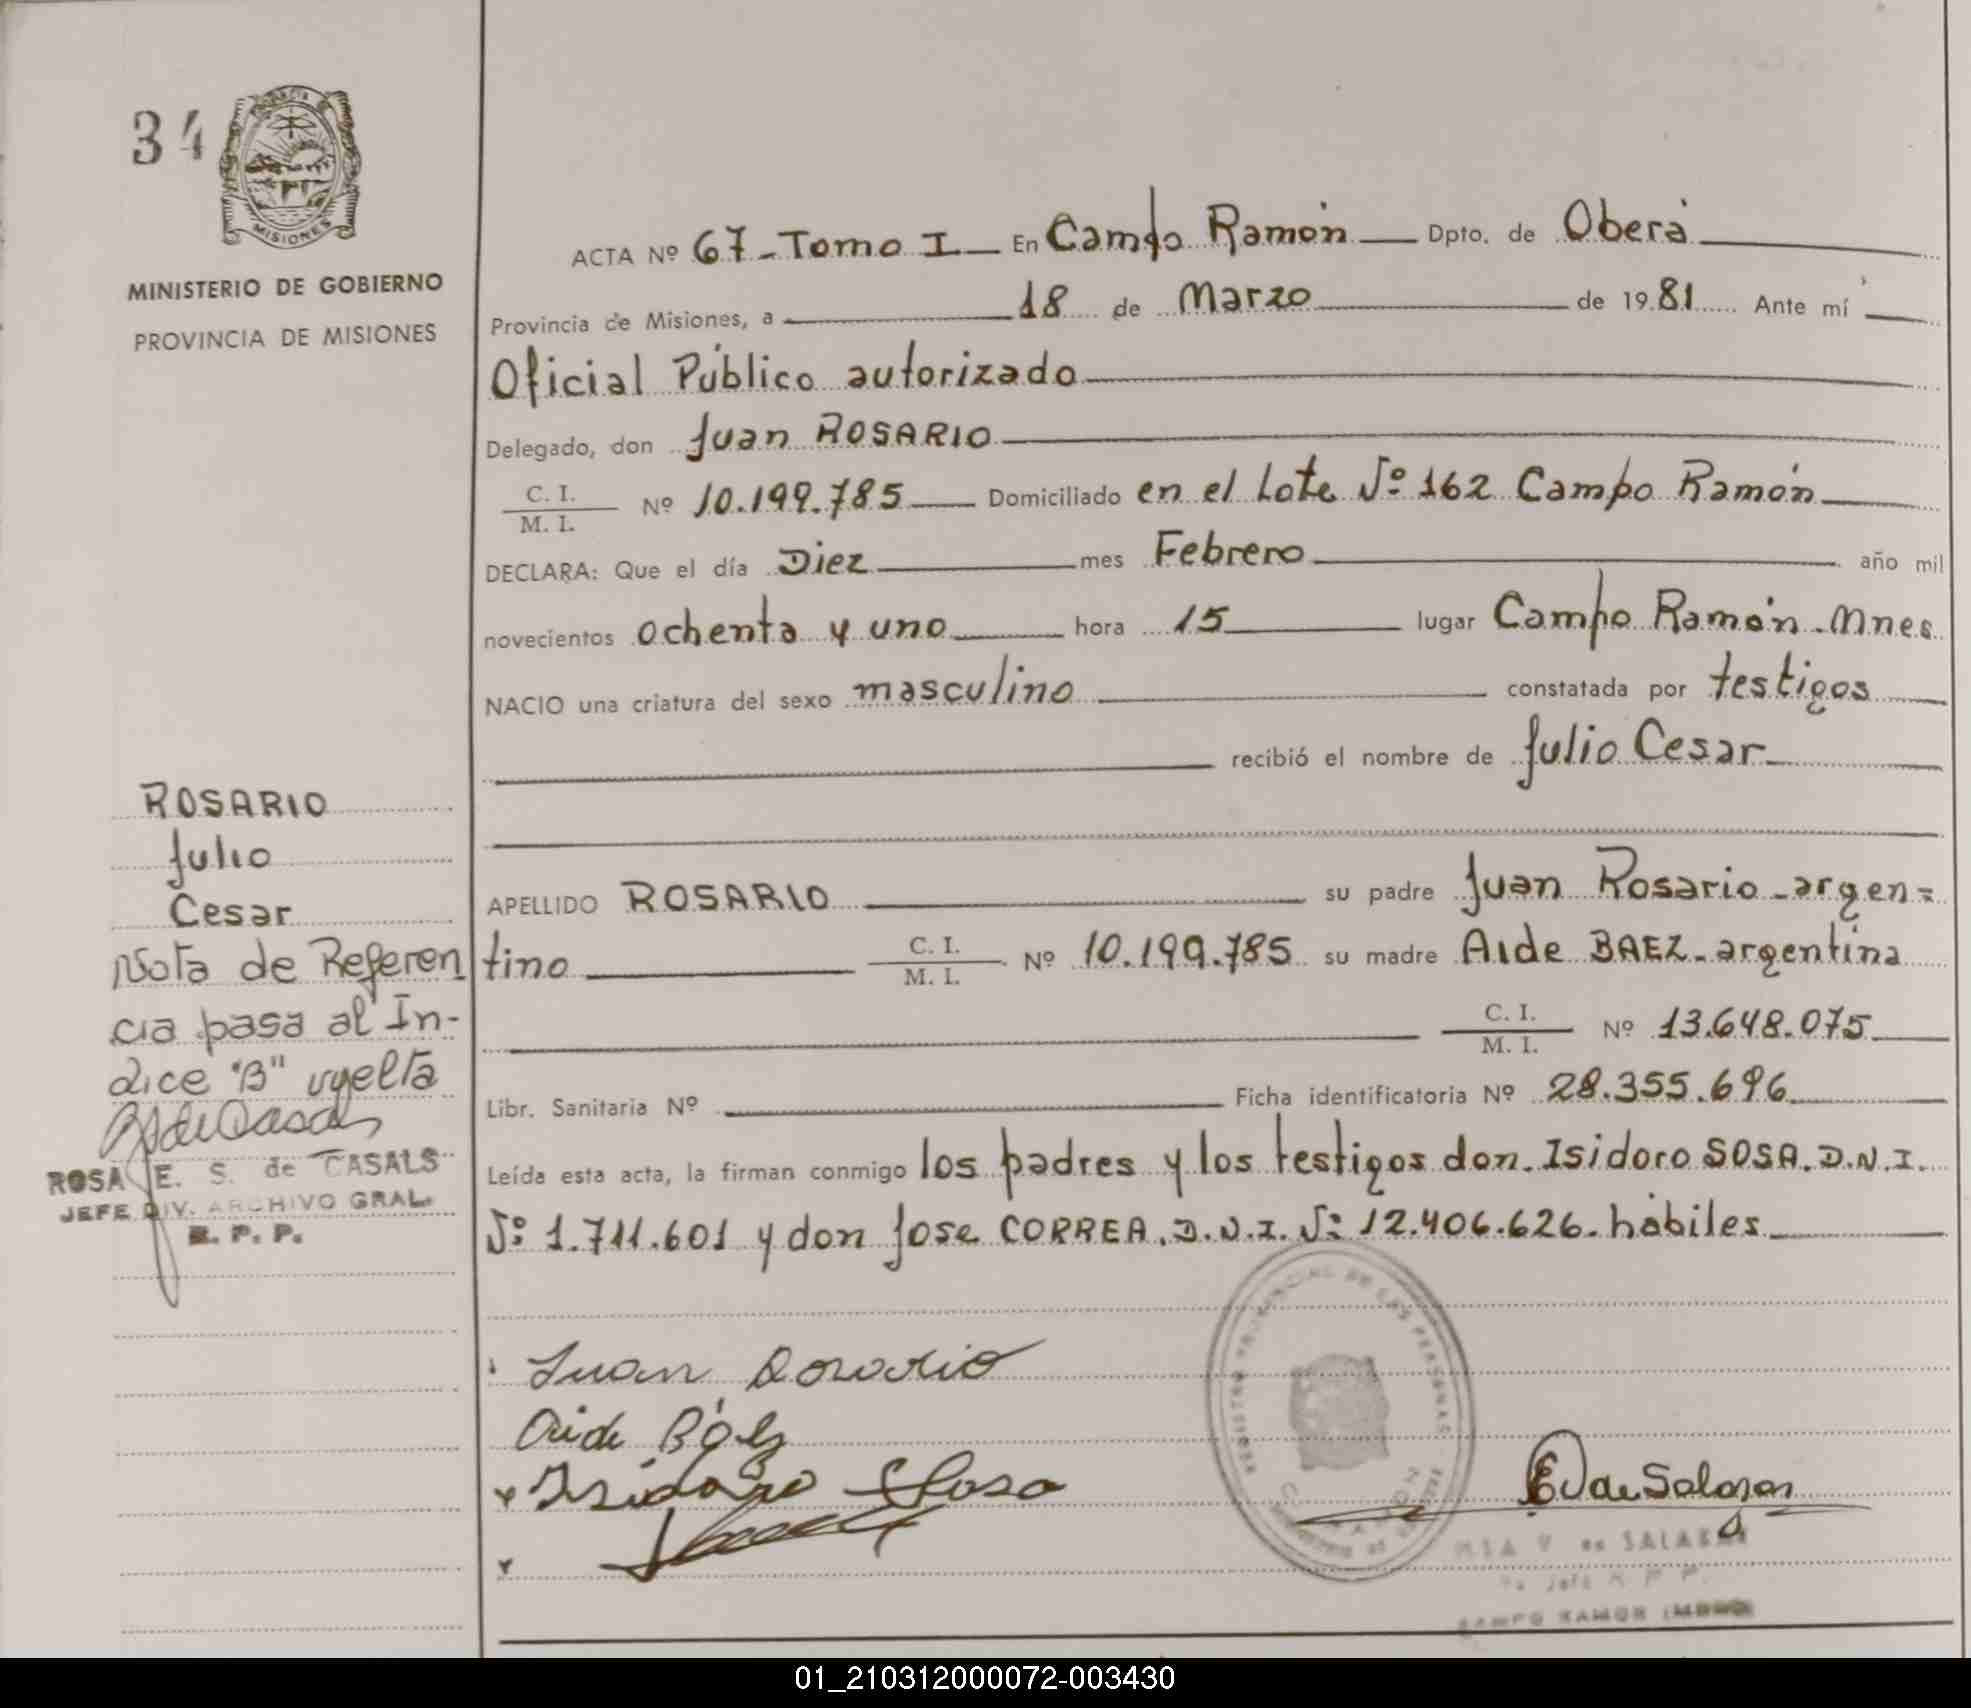 34
PROVINCIA DE
MISIONES
MINISTERIO DE GOBIERNO
PROVINCIA DE MISIONES
ACTA Nº 67 - Tomo I - En Campo Ramón - Dpto. de Oberá
Provincia de Misiones, a 18 de Marzo de 1981 Ante mí
Oficial Público autorizado
Delegado, don Juan ROSARIO
C. I.
M. I. Nº 10.199.785 Domiciliado en el Lote Nº 162 Campo Ramón
DECLARA: Que el día Diez mes Febrero año mil
novecientos ochenta y uno hora 15 lugar Campo Ramón. Mnes
NACIO una criatura del sexo masculino constatada por testigos
recibió el nombre de Julio Cesar
ROSARIO
Julio
Cesar
APELLIDO ROSARIO su padre Juan Rosario - argen=
tino C. I. M. I. Nº 10.199.785 su madre Aide BAEZ - argentina
C. I.
M. I. Nº 13.648.075
Libr. Sanitaria Nº Ficha identificatoria Nº 28.355.696
Leída esta acta, la firman conmigo los padres y los testigos don. Isidoro SOSA. D.N.I.
Nº 1.711.601 y don Jose CORREA. D.N.I. Nº 12.406.626. hábiles
Nota de Referen
cia pasa al In-
dice "B" vuelta
ROSA E. S. de CASALS
JEFE DIV. ARCHIVO GRAL.
R. P. P.
Juan Rosario
Aide Báez
Isidoro Sosa
REGISTRO PROVINCIAL DE LAS PERSONAS
de SALAZAR
CAMPO RAMON
01_210312000072-003430